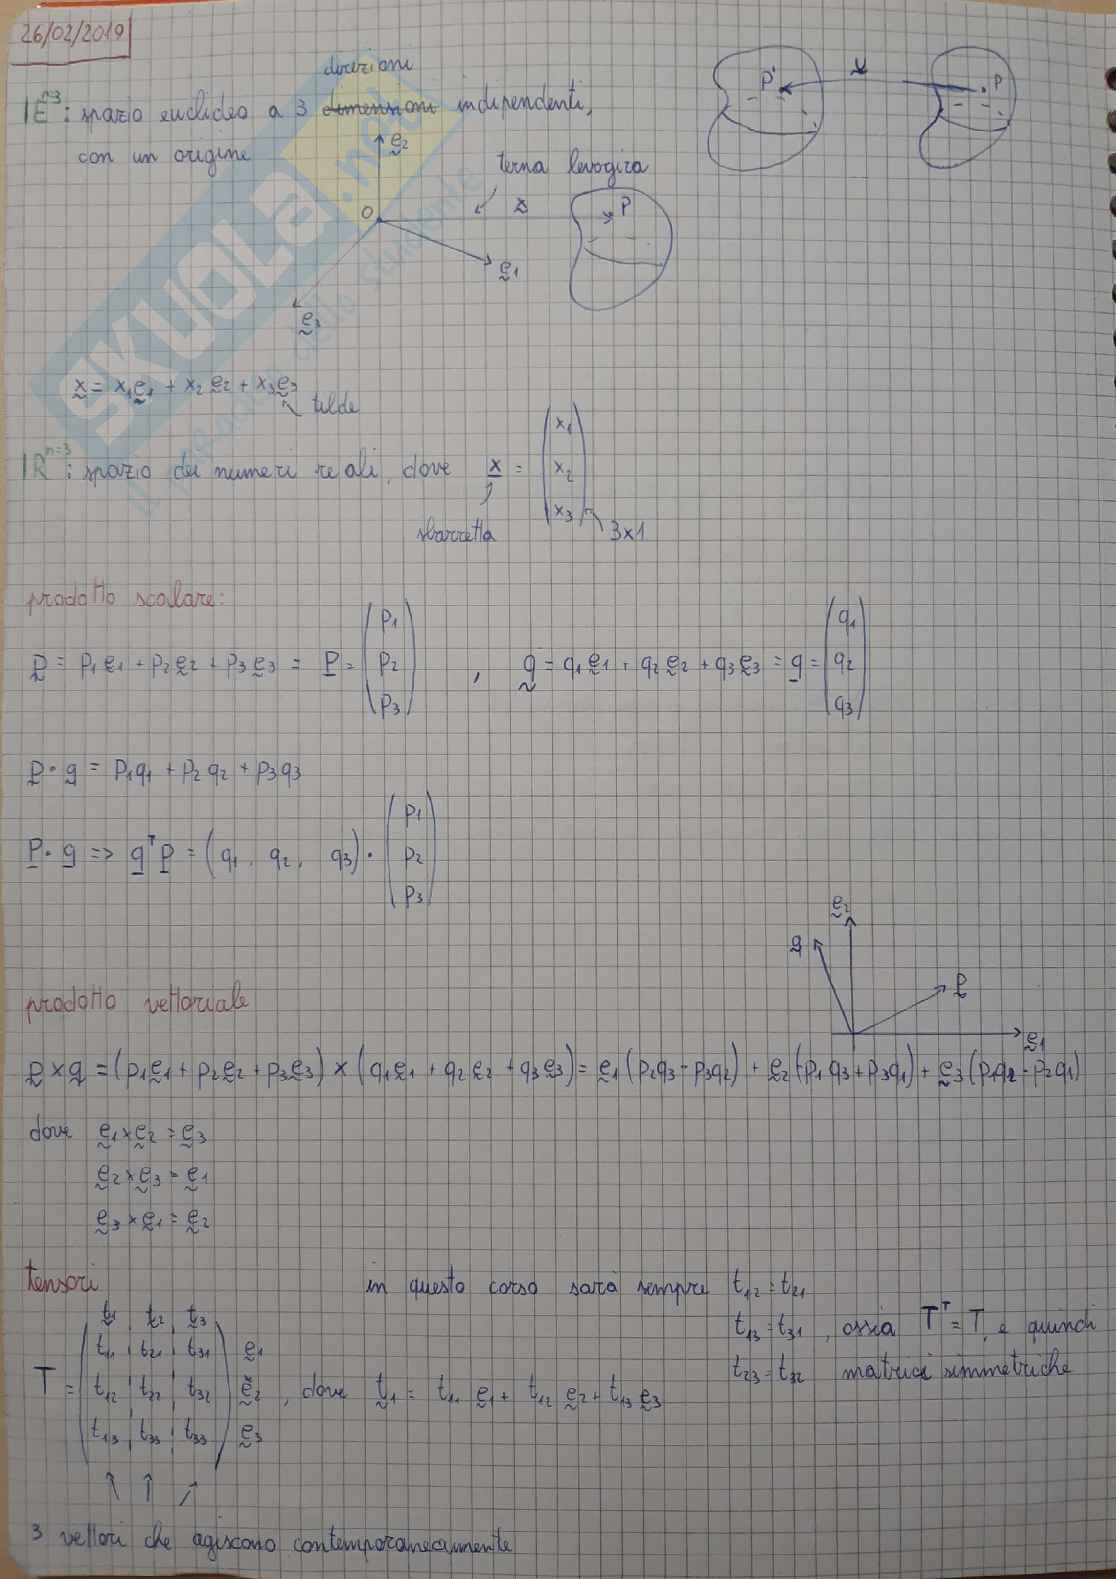 26/02/2019
direzioni
IE^n=3: spazio euclideo a 3 dimensioni indipendenti,
con un origine
e2
terna levogira
O
x
P
e1
e3
P'
u
P
x = x1 e1 + x2 e2 + x3 e3
tilde
IR^n=3: spazio dei numeri reali, dove x = (x1 x2 x3)
sbarretta
3x1
prodotto scalare:
p = p1 e1 + p2 e2 + p3 e3 = p = (p1 p2 p3) , q = q1 e1 + q2 e2 + q3 e3 = q = (q1 q2 q3)
p · q = p1q1 + p2q2 + p3q3
p · q => q^T p = (q1, q2, q3) · (p1 p2 p3)
e2
q
p
e1
prodotto vettoriale
p × q = (p1 e1 + p2 e2 + p3 e3) × (q1 e1 + q2 e2 + q3 e3) = e1 (p2q3 - p3q2) + e2 (-p1q3 + p3q1) + e3 (p1q2 - p2q1)
dove e1 × e2 = e3
e2 × e3 = e1
e3 × e1 = e2
tensori
in questo corso sarà sempre t12 = t21
t13 = t31 , ossia T^T = T, e quindi
t23 = t32 matrici simmetriche
t1 t2 t3
t11 t21 t31 e1
T = t12 t22 t32 e2 , dove t1 = t11 e1 + t12 e2 + t13 e3
t13 t33 t33 e3
3 vettori che agiscono contemporaneamente
SKUOLA.net